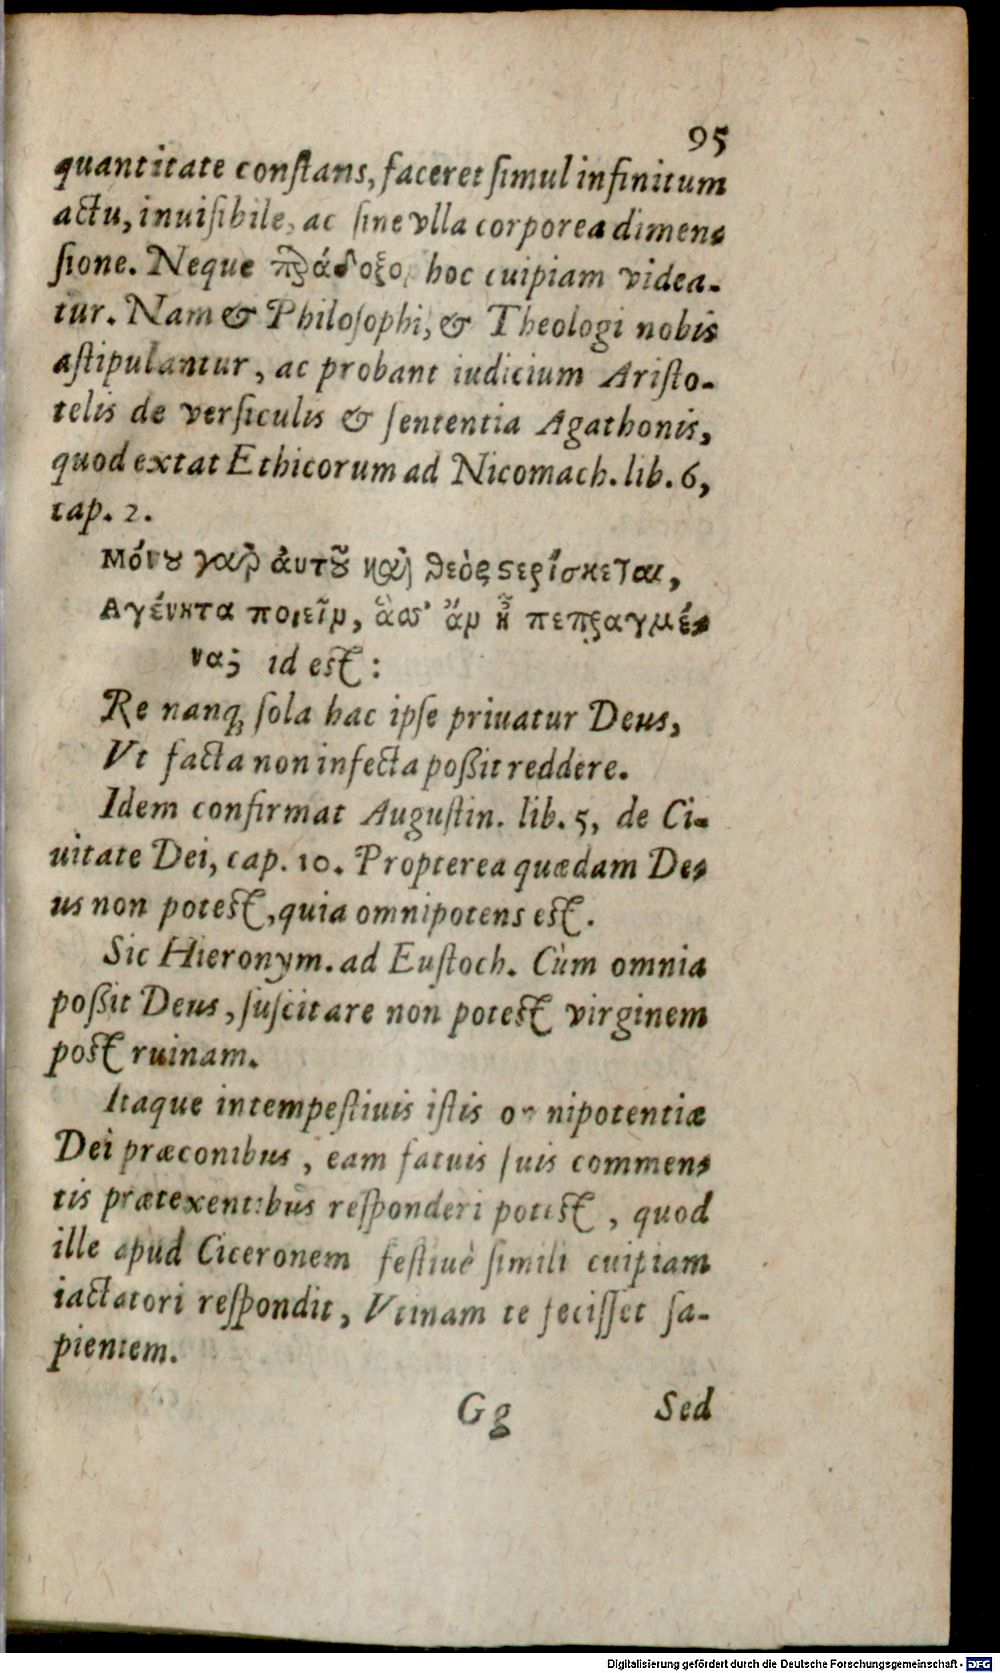 95
quantitate constans, faceret simul infinitum
actu, inuisibile, ac sine vlla corporea dimen-
sione. Neque παράδοξον hoc cuipiam videa-
tur. Nam & Philosophi, & Theologi nobis
astipulantur, ac probant iudicium Aristo-
telis de versiculis & sententia Agathonis,
quod extat Ethicorum ad Nicomach. lib. 6,
cap. 2.
Μόνου γαρ ἀυτοῦ καὶ θεὸς στερίσκεται,
Αγένητα ποιεῖν, ἃσσ' ἂν ἦ πεπραγμέ-
να; id est:
Re nanq; sola hac ipse priuatur Deus,
Vt facta non infecta poßit reddere.
Idem confirmat Augustin. lib. 5, de Ci-
uitate Dei, cap. 10. Propterea quædam De-
us non potest, quia omnipotens est.
Sic Hieronym. ad Eustoch. Cùm omnia
poßit Deus, suscitare non potest virginem
post ruinam.
Itaque intempestiuis istis omnipotentiæ
Dei præconibus, eam fatuis suis commen-
tis prætexentibus responderi potest, quod
ille apud Ciceronem festiuè simili cuipiam
iactatori respondit, Vtinam te fecisset sa-
pientem.
Gg Sed
Digitalisierung gefördert durch die Deutsche Forschungsgemeinschaft - DFG